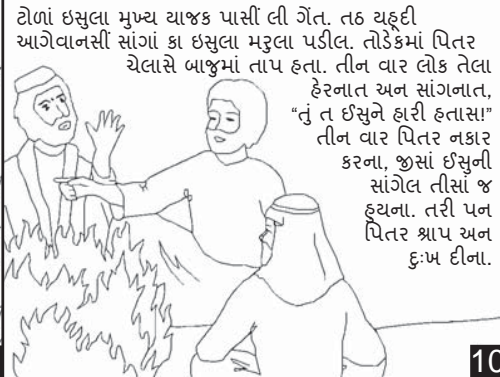 ટોળાં ઇસુલા મુખ્ય યાજક પાસીં લી ગેંત. તઠ યહૂદી
આગેવાનસીં સાંગાં કા ઇસુલા મરુલા પડીલ. તોડેકમાં પિતર
ચેલાસે બાજુમાં તાપ હતા. તીન વાર લોક તેલા
હેરનાત અન સાંગનાત,
“તું ત ઈસુને હારી હતાસ!”
તીન વાર પિતર નકાર
કરના, જીસાં ઈસુની
સાંગેલ તીસાં જ
હુયના. તરી પન
પિતર શ્રાપ અન
દુઃખ દીના.
10